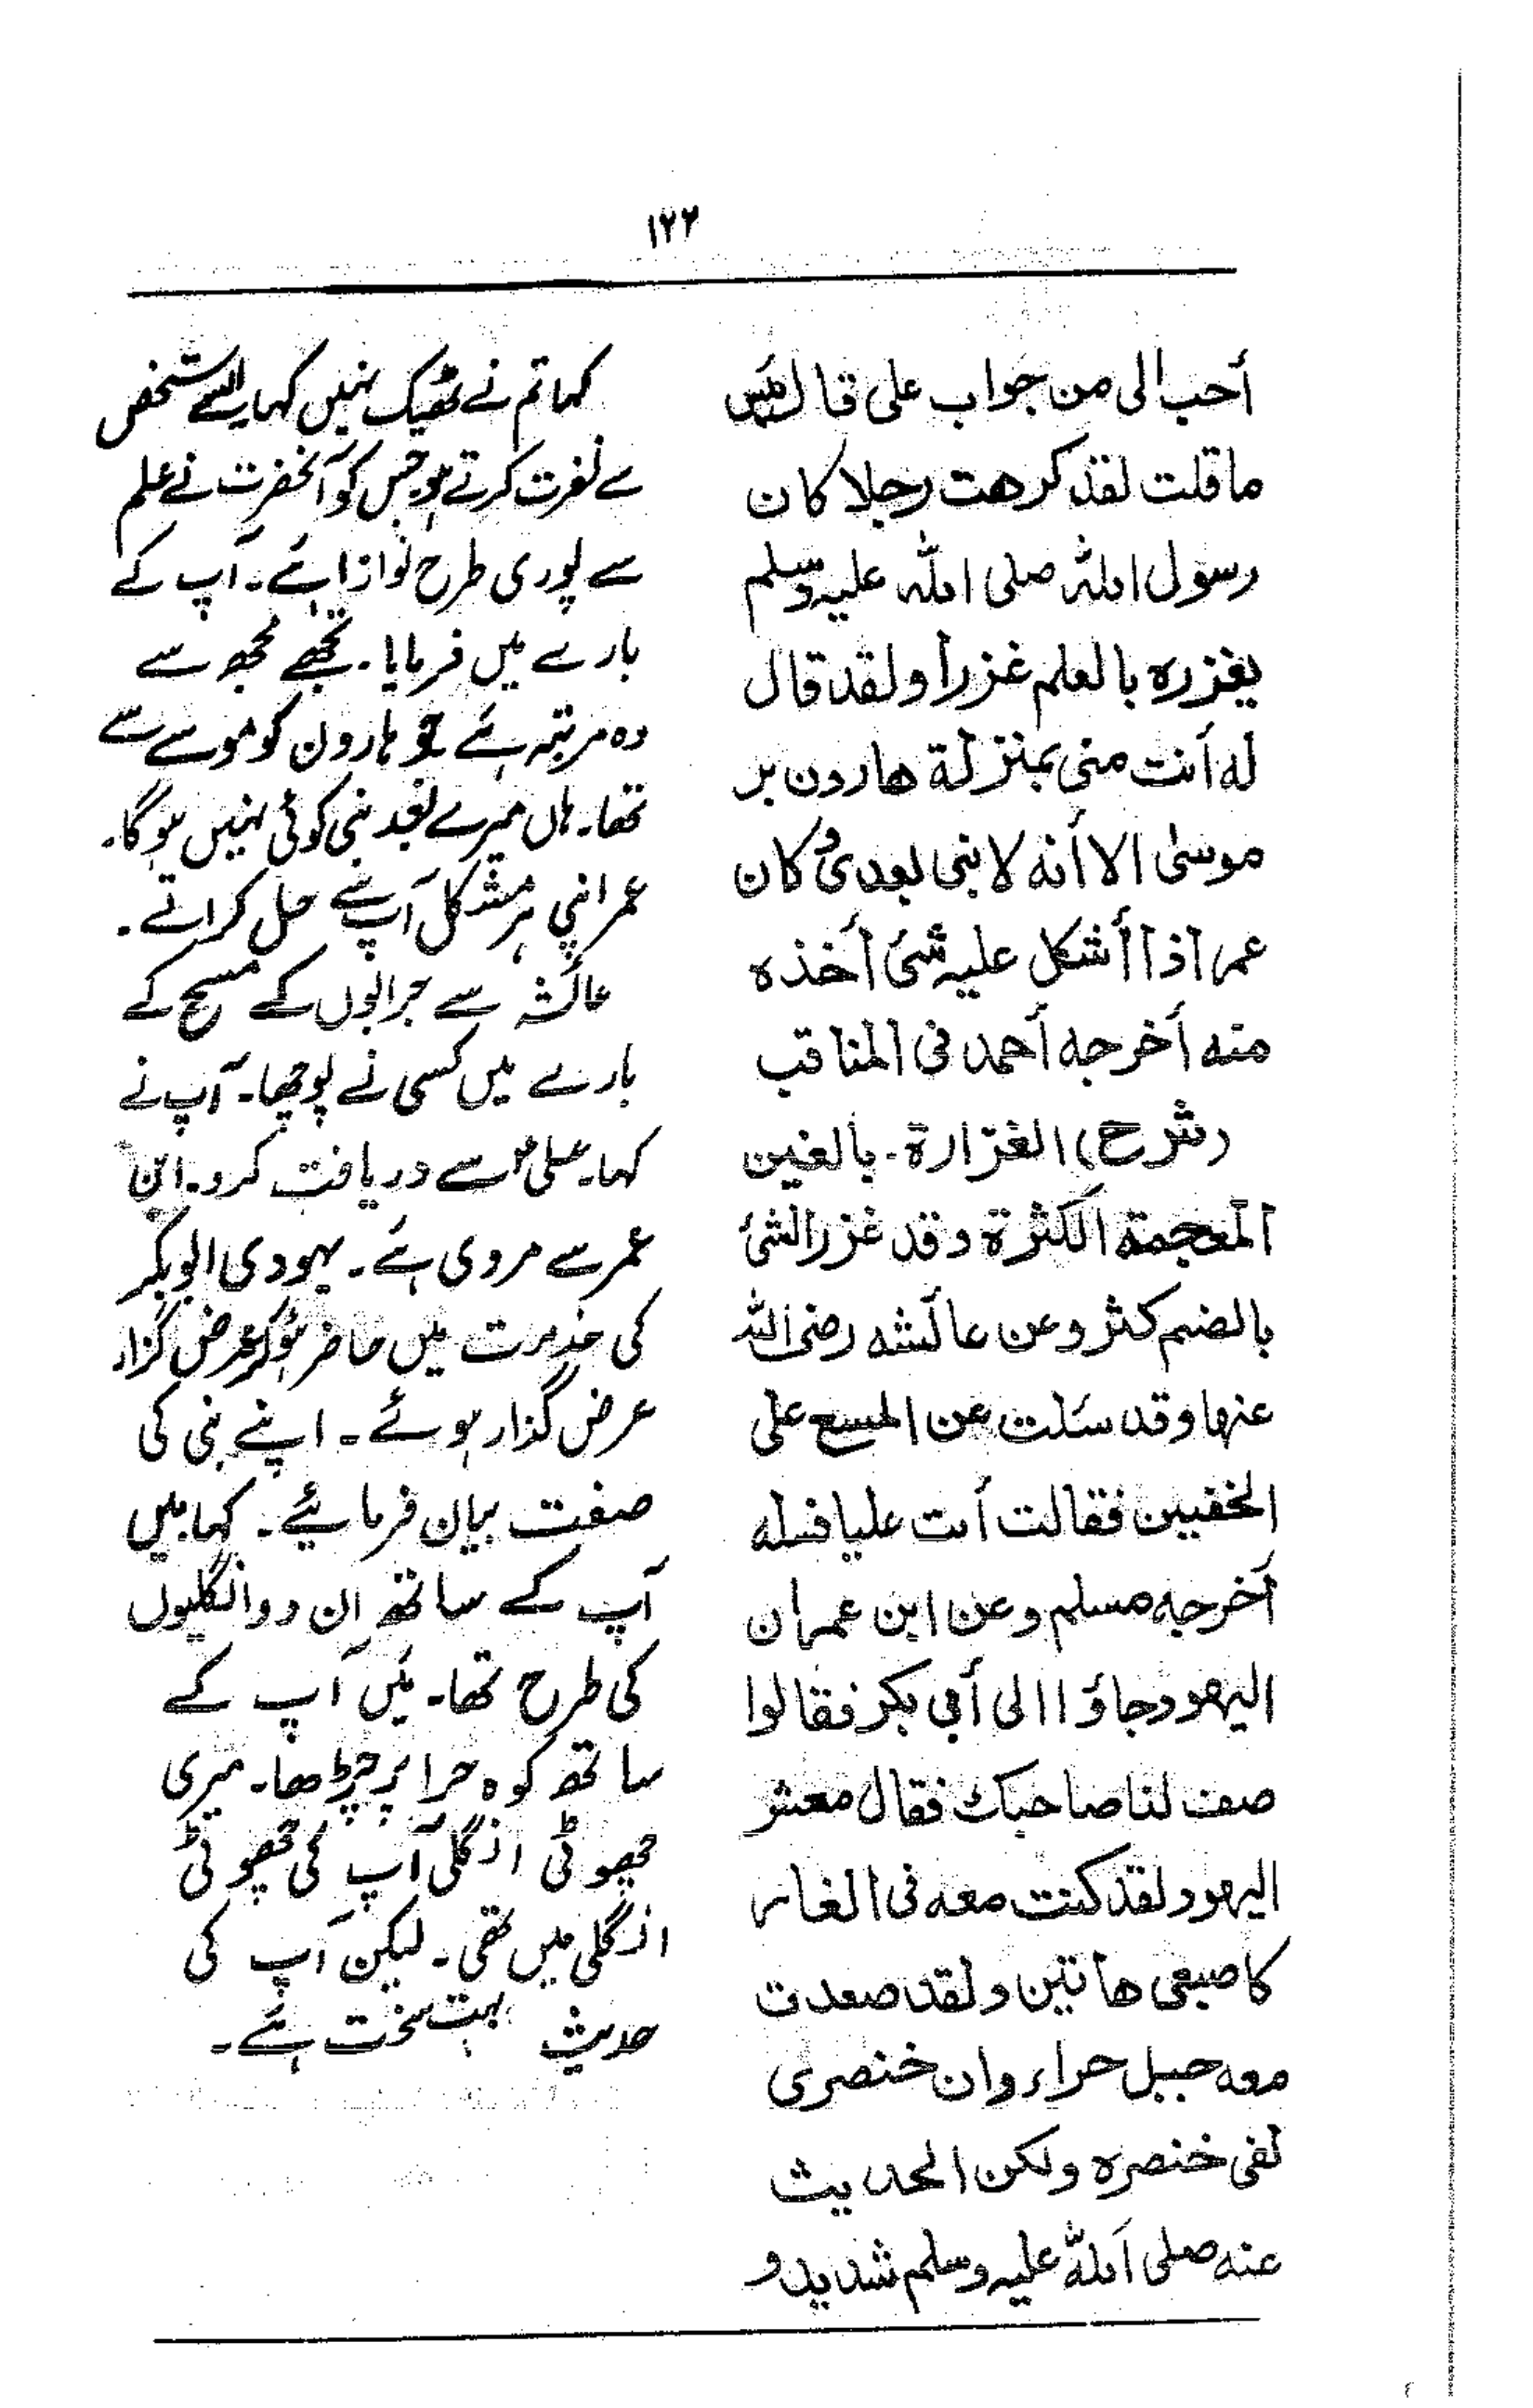 ۱۲۲
أحب الی من جواب علی قال بئس
ما قلت لقد کرهت رجلا کان
رسول الله صلی الله علیه وسلم
یغزره بالعلم غزرا ولقد قال
له أنت منی بمنزلة هارون بر
موسیٰ الا أنه لا نبی بعدی و کان
عمر اذا أشکل علیه شئ أخذه
منه أخرجه أحمد فی المناقب
(شرح) الغزارة ۔ بالغین
المعجمة الکثرة وقد غزر الشئ
بالضم کثر وعن عائشه رضی الله
عنها وقد سئلت عن المسح علی
الخفیین فقالت أئت علیا فسله
أخرجه مسلم وعن ابن عمر ان
الیهود جاؤا الی أبی بکر فقالوا
صف لنا صاحبک فقال معشر
الیهود لقد کنت معه فی الغار
کاصبعی هاتین ولقد صعدت
معه جبل حراء وان خنصری
لفی خنصره ولکن الحدیث
عنه صلی الله علیه وسلم شدید و
کہا تم نے ٹھیک نہیں کہا۔ ایسے شخص
سے نفرت کرتے ہو جس کو آنحضرت نے علم
سے پوری طرح نوازا ہے۔ آپ کے
بارے میں فرمایا۔ تجھے مجھ سے
وہ مرتبہ ہے جو ہارون کو موسے سے
تھا۔ ہاں میرے بعد نبی کوئی نہیں ہوگا۔
عمر اپنی ہر مشکل آپ سے حل کراتے۔
عائشہ سے جرابوں کے مسح کے
بارے میں کسی نے پوچھا۔ آپ نے
کہا۔ علیؑ سے دریافت کرو۔ ابن
عمر سے مروی ہے۔ یہودی ابوبکر
کی خدمت میں حاضر ہوکر عرض گزار
عرض گذار ہوئے۔ اپنے نبی کی
صفت بیان فرمائیے۔ کہا میں
آپ کے ساتھ ان دو انگلیوں
کی طرح تھا۔ میں آپ کے
ساتھ کوہ حرا پر چڑھا۔ میری
چھوٹی انگلی آپ کی چھوٹی
انگلی میں تھی۔ لیکن آپ کی
حدیث بہت سخت ہے۔